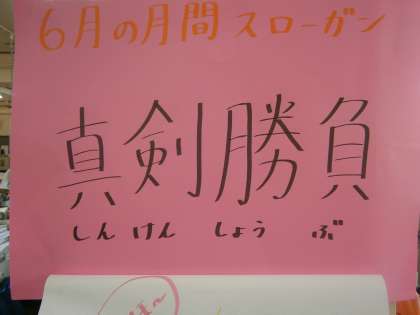 6月の月間スローガン
真剣勝負
しんけん しょうぶ